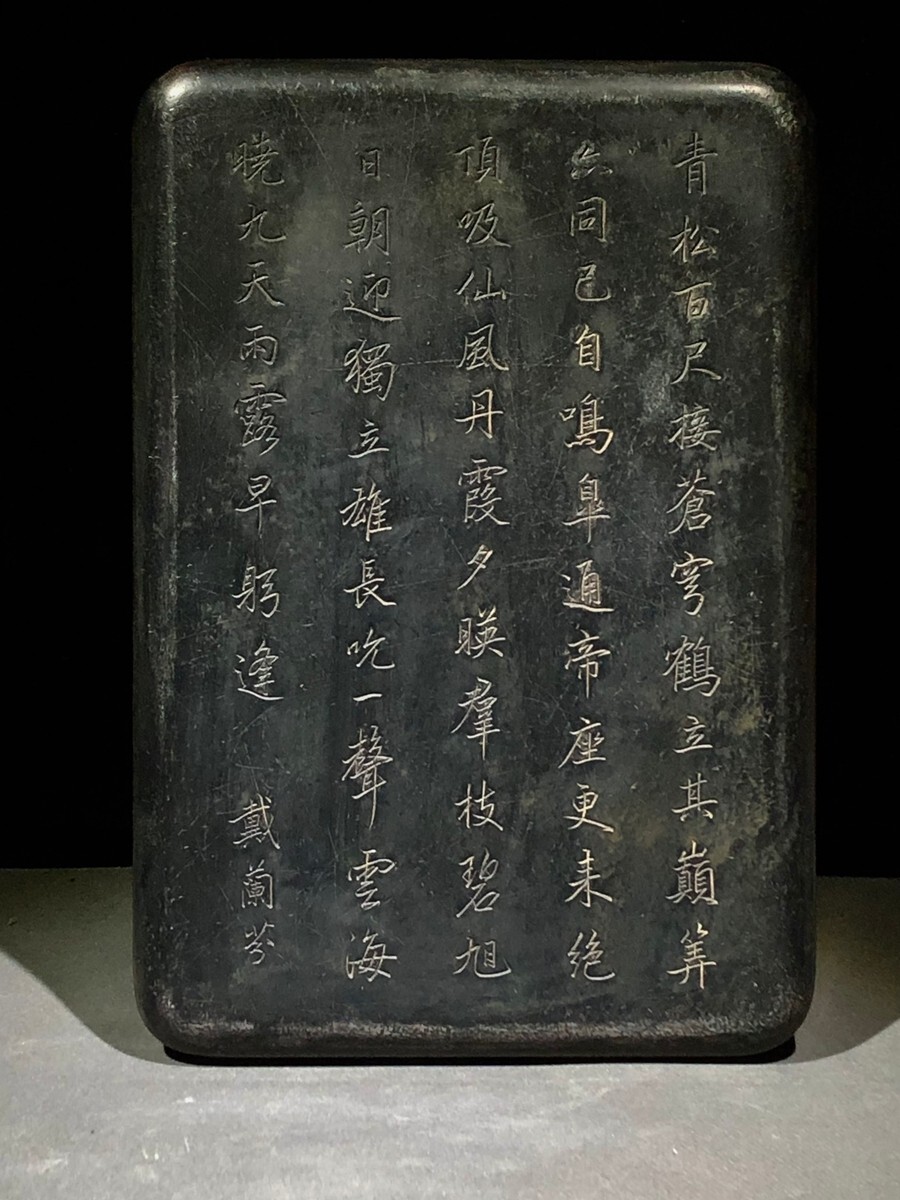 青松百尺接蒼穹鶴立其巔筭
同已自鳴皐通帝座更来絕
頂吸仙風丹霞夕暎羣枝碧旭
日朝迎獨立雄長吃一聲雲海
曉九天雨露早躬逢 戴蘭芬